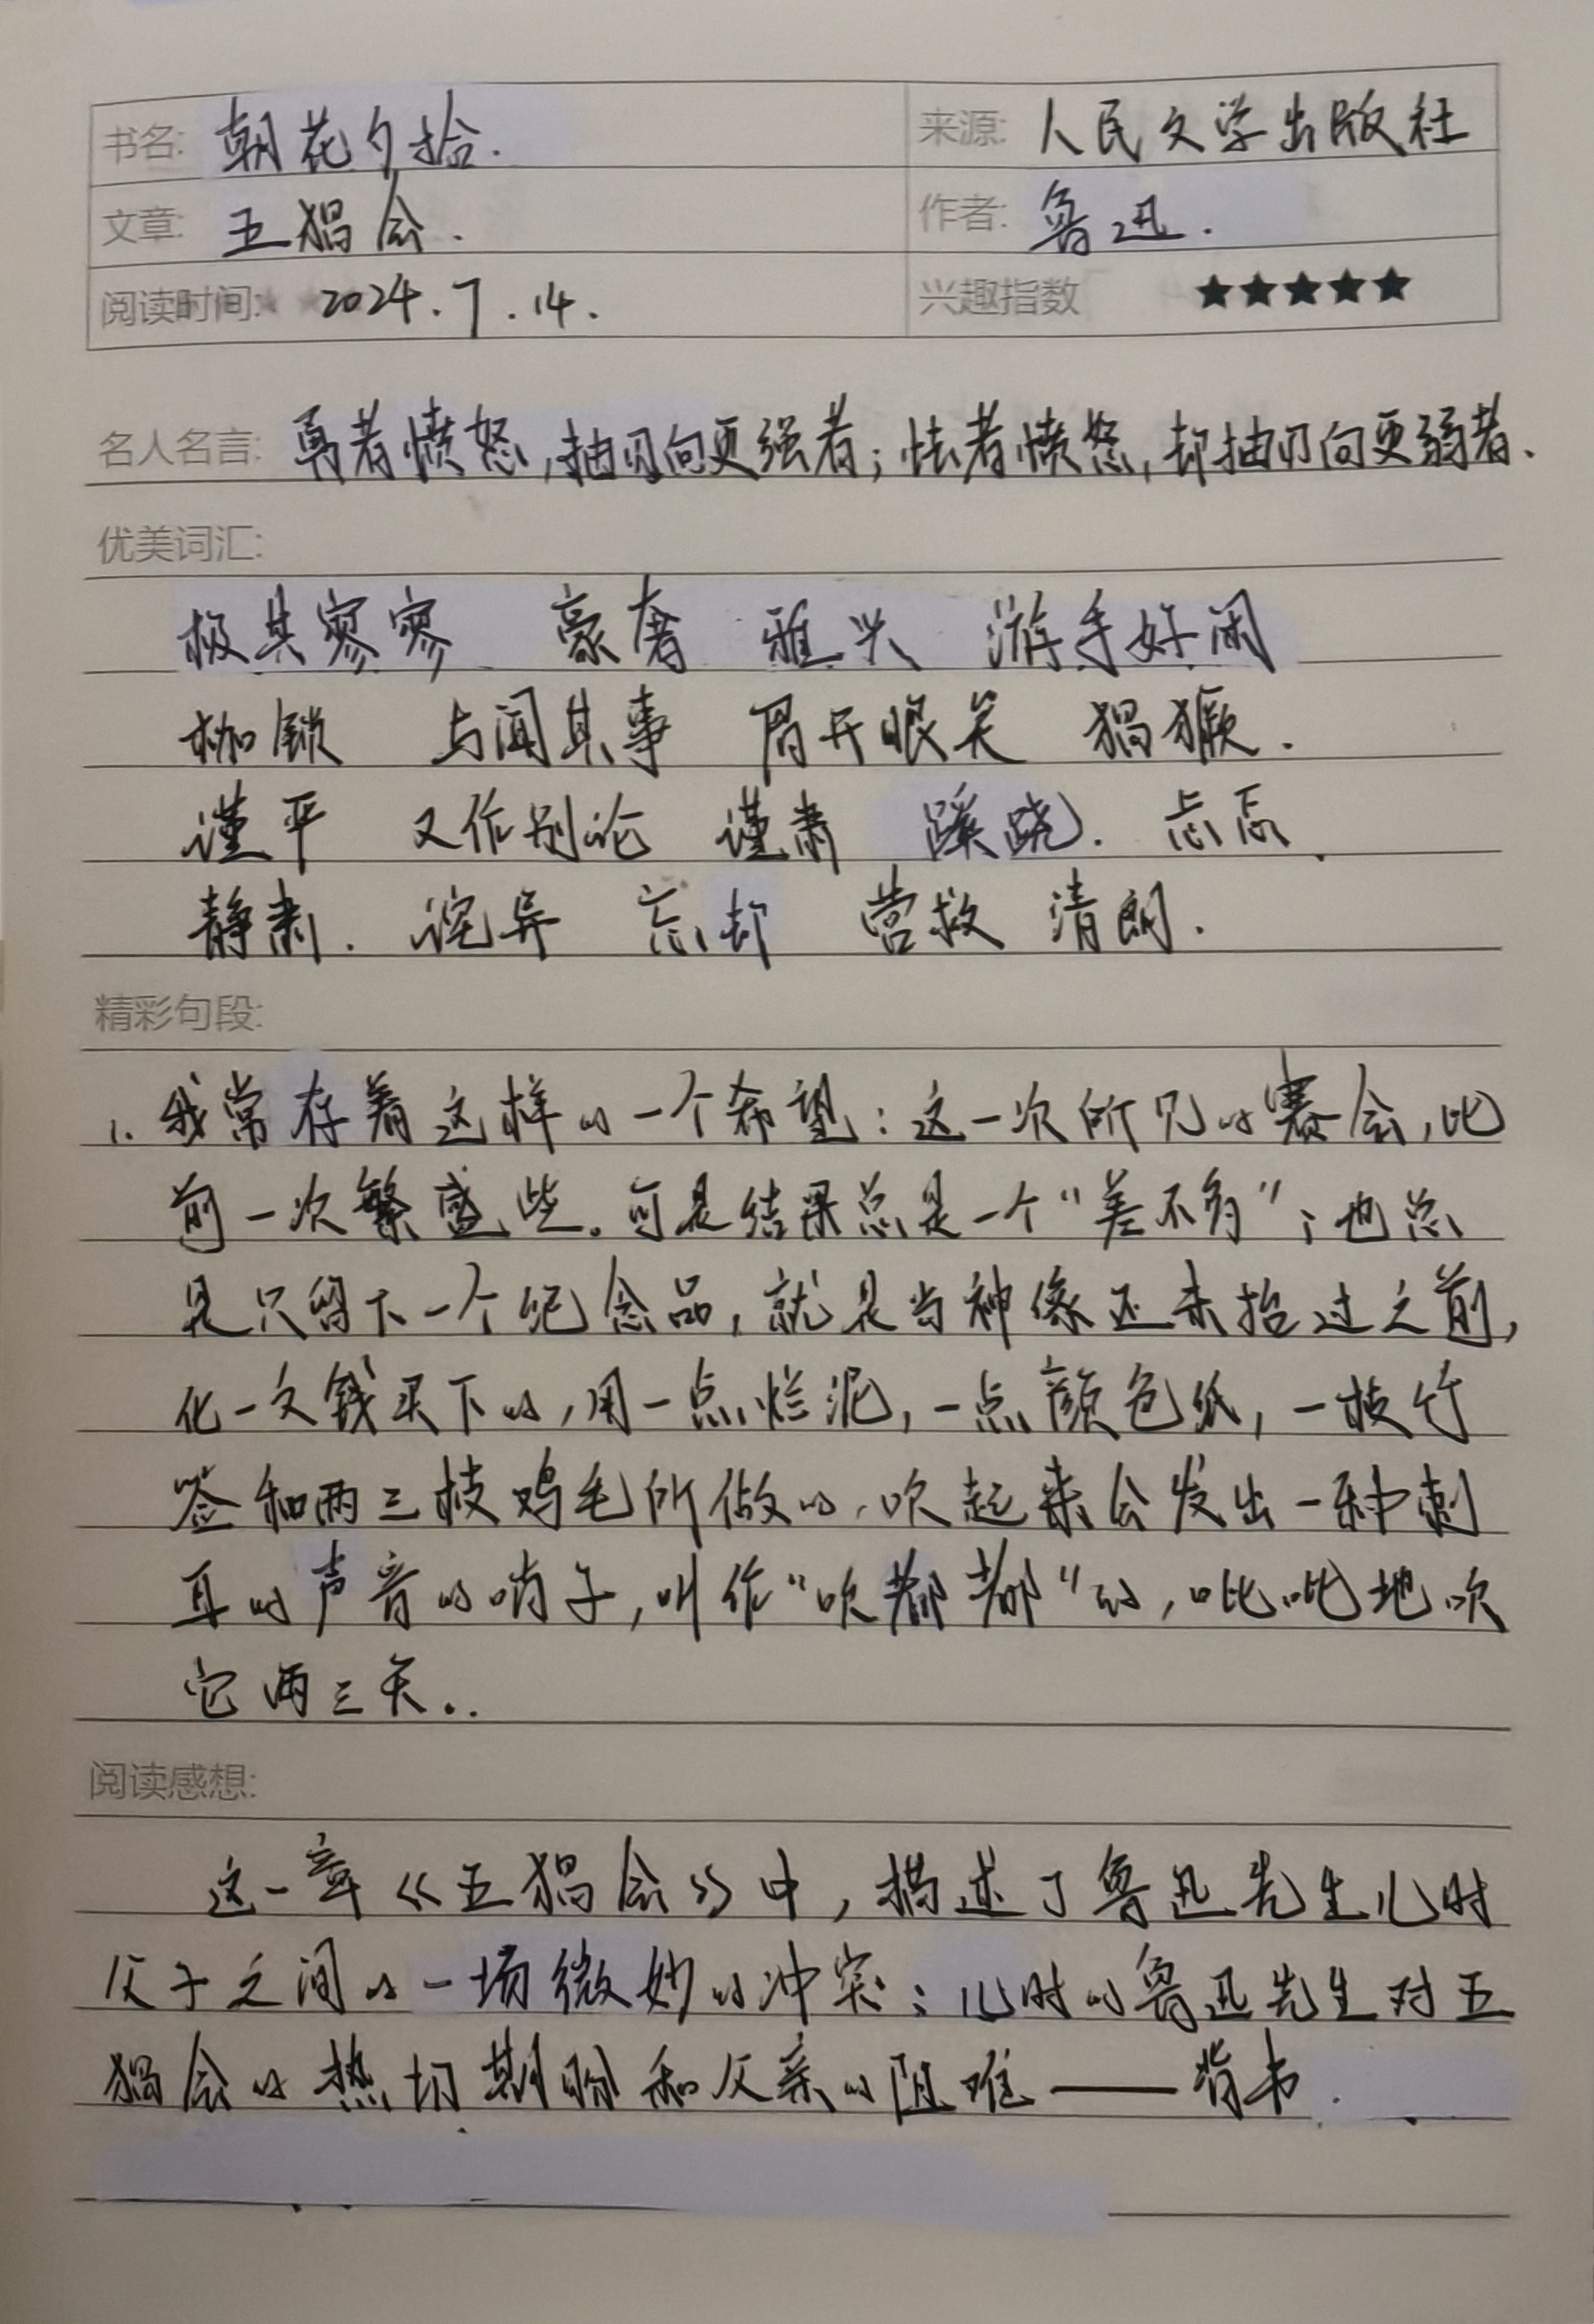 书名: 朝花夕拾. 来源: 人民文学出版社
文章: 五猖会. 作者: 鲁迅.
阅读时间: 2024.7.14. 兴趣指数 ★★★★★
名人名言: 勇者愤怒,抽刃向更强者;怯者愤怒,却抽刃向更弱者、
优美词汇:
极其寥寥 豪奢 雅兴 游手好闲
枷锁 与闻其事 眉开眼笑 猖獗.
谨平 又作别论 谨肃 蹊跷. 忐忑
静肃. 诧异 忘却 营救 清朗.
精彩句段:
1. 我常存着这样的一个希望:这一次所见的赛会,比
前一次繁盛些。可是结果总是一个“差不多”;也总
是只留下一个纪念品,就是当神像还未抬过之前,
化一文钱买下的,用一点烂泥,一点颜色纸,一枝竹
签和两三枝鸡毛所做的,吹起来会发出一种刺
耳的声音的哨子,叫作“吹都都”的,吡吡地吹
它两三天..
阅读感想:
这一章《五猖会》中,描述了鲁迅先生儿时
父子之间的一场微妙的冲突:儿时的鲁迅先生对五
猖会的热切期盼和父亲的阻难——背书.